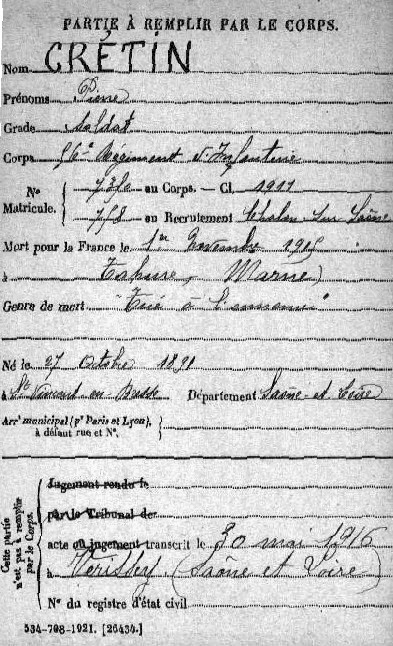 PARTIE À REMPLIR PAR LE CORPS.
Nom CRÉTIN
Prénoms Pierre
Grade Soldat
Corps 56e Régiment d'Infanterie
No Matricule. 7350 au Corps. — Cl. 1911
758 au Recrutement Chalon sur Saône
Mort pour la France le 1er Novembre 1915
à Tahure, Marne
Genre de mort "Tué à l'ennemi"
Né le 27 Octobre 1891
à St Vincent en Bresse Département Saône-et-Loire
Arrt municipal (pr Paris et Lyon),
à défaut rue et No.
Cette partie
n'est pas à remplir
par le Corps.
Jugement rendu le
par le Tribunal de
acte ou jugement transcrit le 30 mai 1916
à Vérissey (Saône et Loire)
No du registre d'état civil
534-708-1921. [26434.]